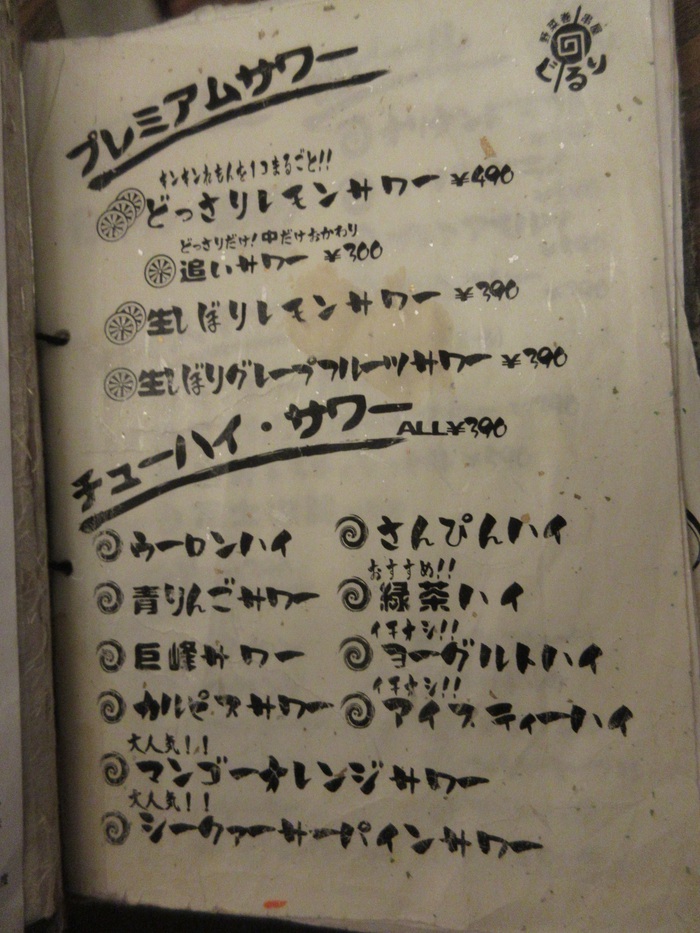 野菜巻串屋
ぐるり
プレミアムサワー
キンキンれもんを1コまるごと!!
どっさりレモンサワー ¥490
どっさりだけ!中だけおかわり
追いサワー ¥300
生しぼりレモンサワー ¥390
生しぼりグレープフルーツサワー ¥390
チューハイ・サワー ALL¥390
ウーロンハイ
さんぴんハイ
青りんごサワー
おすすめ!!
緑茶ハイ
巨峰サワー
イチオシ!!
ヨーグルトハイ
カルピスサワー
イチオシ!!
アイスティーハイ
大人気!!
マンゴーオレンジサワー
大人気!!
シークァーサーパインサワー